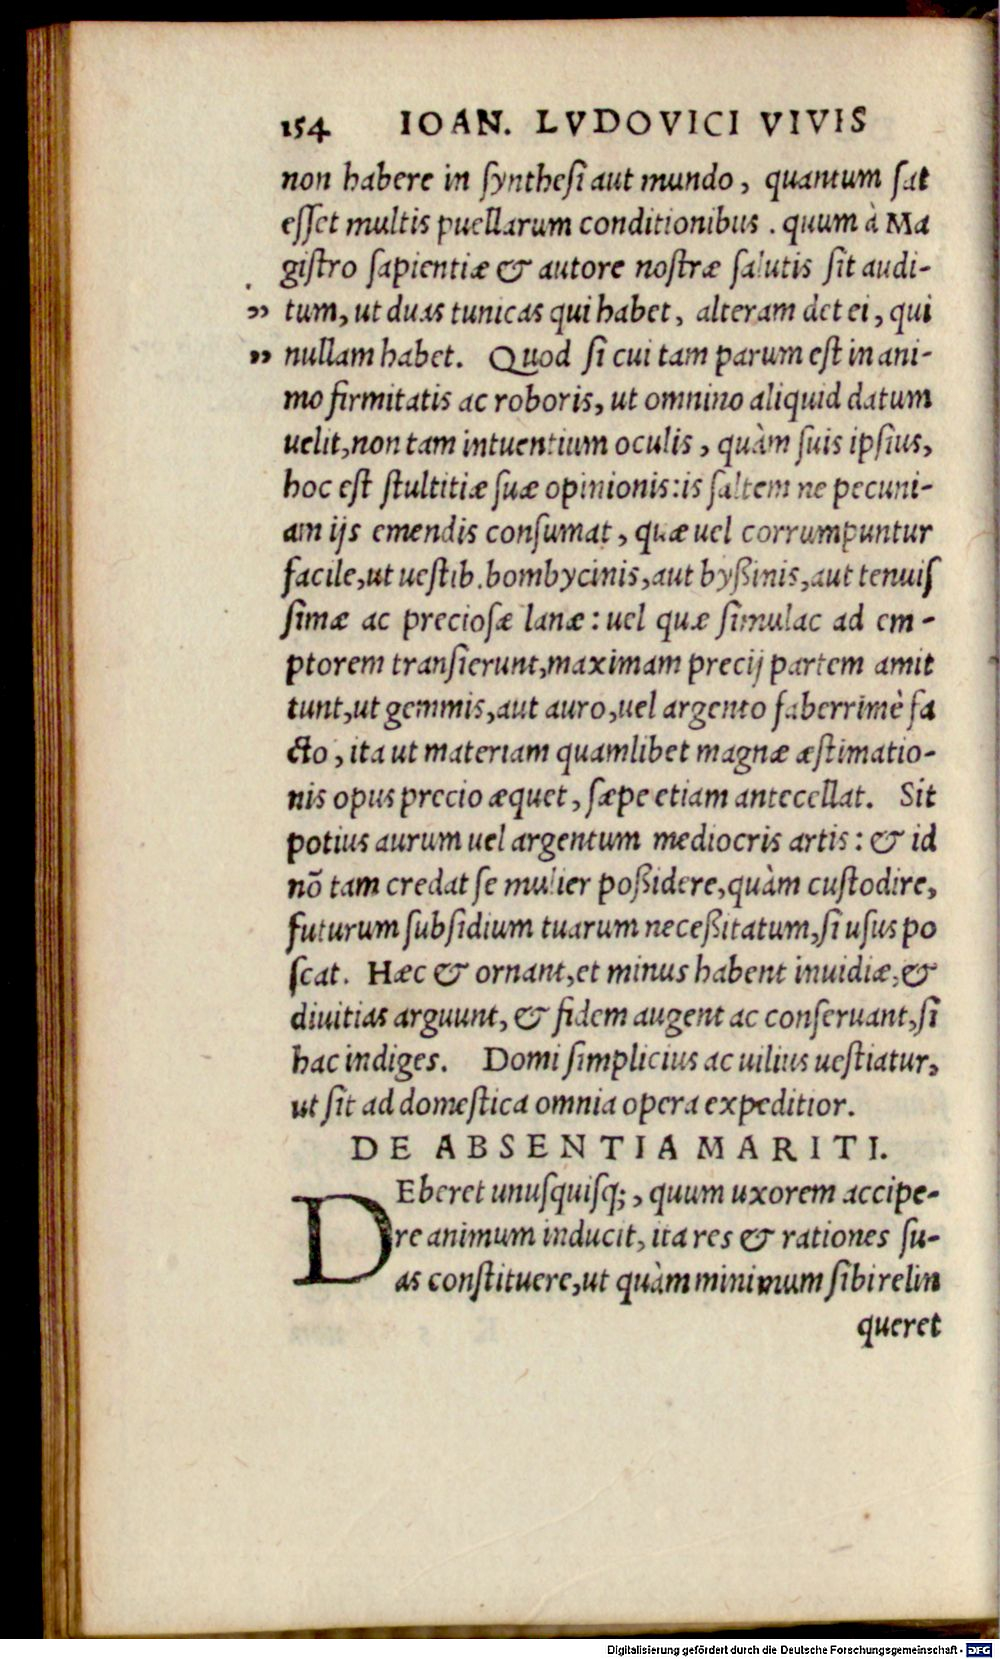 154 IOAN. LVDOVICI VIVIS
non habere in ſyntheſi aut mundo, quantum ſat
eſſet multis puellarum conditionibus. quum à Ma
giſtro ſapientiæ & autore noſtræ ſalutis ſit audi-
„ tum, ut duas tunicas qui habet, alteram det ei, qui
„ nullam habet. Quod ſi cui tam parum eſt in ani-
mo firmitatis ac roboris, ut omnino aliquid datum
uelit, non tam intuentium oculis, quàm ſuis ipſius,
hoc eſt ſtultitiæ ſuæ opinionis: is ſaltem ne pecuni-
am ijs emendis conſumat, quæ uel corrumpuntur
facile, ut ueſtib. bombycinis, aut byßinis, aut tenuiſ
ſimæ ac precioſæ lanæ: uel quæ ſimulac ad em-
ptorem tranſierunt, maximam precij partem amit
tunt, ut gemmis, aut auro, uel argento faberrimè fa
cto, ita ut materiam quamlibet magnæ æſtimatio-
nis opus precio æquet, ſæpe etiam antecellat. Sit
potius aurum uel argentum mediocris artis: & id
nō tam credat ſe mulier poßidere, quàm cuſtodire,
futurum ſubſidium tuarum neceßitatum, ſi uſus po
ſcat. Hæc & ornant, et minus habent inuidiæ, &
diuitias arguunt, & fidem augent ac conſeruant, ſi
hac indiges. Domi ſimplicius ac uilius ueſtiatur,
ut ſit ad domeſtica omnia opera expeditior.
DE ABSENTIA MARITI.
DEberet unuſquiſq;, quum uxorem accipe-
re animum inducit, ita res & rationes ſu-
as conſtituere, ut quàm minimum ſibi relin
queret
Digitalisierung gefördert durch die Deutsche Forschungsgemeinschaft - DFG